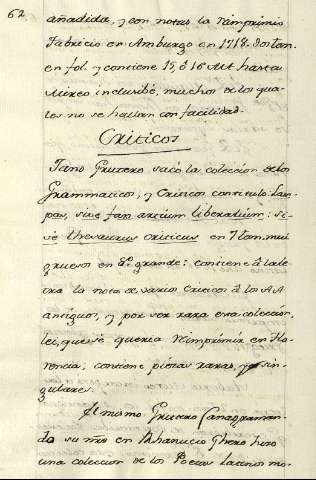 62
añadida, y con notas la reimprimio
Fabricio en Amburgo en 1718. dos tom.
en fol. y contiene 15, ó 16 AA hasta
Mireo inclusibé, muchos de los qua-
les no se hallan con facilidad.
Criticos
Jano Grutero sacó la coleccion de los
Grammaticos, y Criticos con titulo: Lam-
pas, sive fax artium liberalium: si-
ve Thesaurus criticus en 7 tom. mui
gruesos en 8º grande: contiene á la le-
tra la nota de varios Criticos á los AA
antiguos, y por ser rara esta coleccion,
lei, que se queria reimprimir en Flo-
rencia; contiene piezas raras, y sin-
gulares.
El mismo Grutero
do su nre en Rhanucio Ghero hizo
una coleccion de los Poetas Latinos mo-